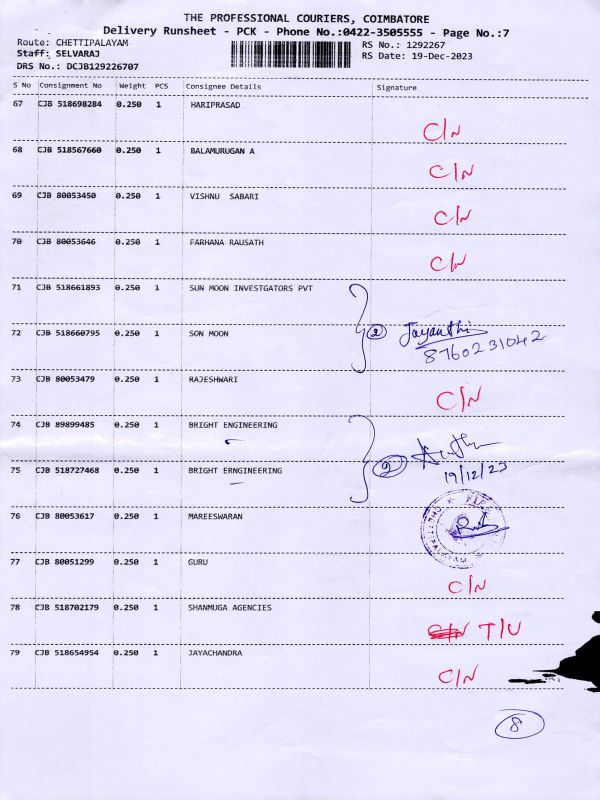 THE PROFESSIONAL COURIERS, COIMBATORE
Delivery Runsheet - PCK - Phone No.:0422-3505555 - Page No.:7
Route: CHETTIPALAYAM
RS No.: 1292267
Staff: SELVARAJ
RS Date: 19-Dec-2023
DRS No.: DCJB129226707
S No Consignment No Weight PCS Consignee Details Signature
67 CJB 518698284 0.250 1 HARIPRASAD
C/N
68 CJB 518567660 0.250 1 BALAMURUGAN A
C/N
69 CJB 80053450 0.250 1 VISHNU SABARI
C/N
70 CJB 80053646 0.250 1 FARHANA RAUSATH
C/N
71 CJB 518661893 0.250 1 SUN MOON INVESTGATORS PVT
72 CJB 518660795 0.250 1 SON MOON
2 Jayanthi
8760231042
73 CJB 80053479 0.250 1 RAJESHWARI
C/N
74 CJB 89899485 0.250 1 BRIGHT ENGINEERING
75 CJB 518727468 0.250 1 BRIGHT ERNGINEERING
2
19/12/23
76 CJB 80053617 0.250 1 MAREESWARAN
77 CJB 80051299 0.250 1 GURU
C/N
78 CJB 518702179 0.250 1 SHANMUGA AGENCIES
C/N T/U
79 CJB 518654954 0.250 1 JAYACHANDRA
C/N
8